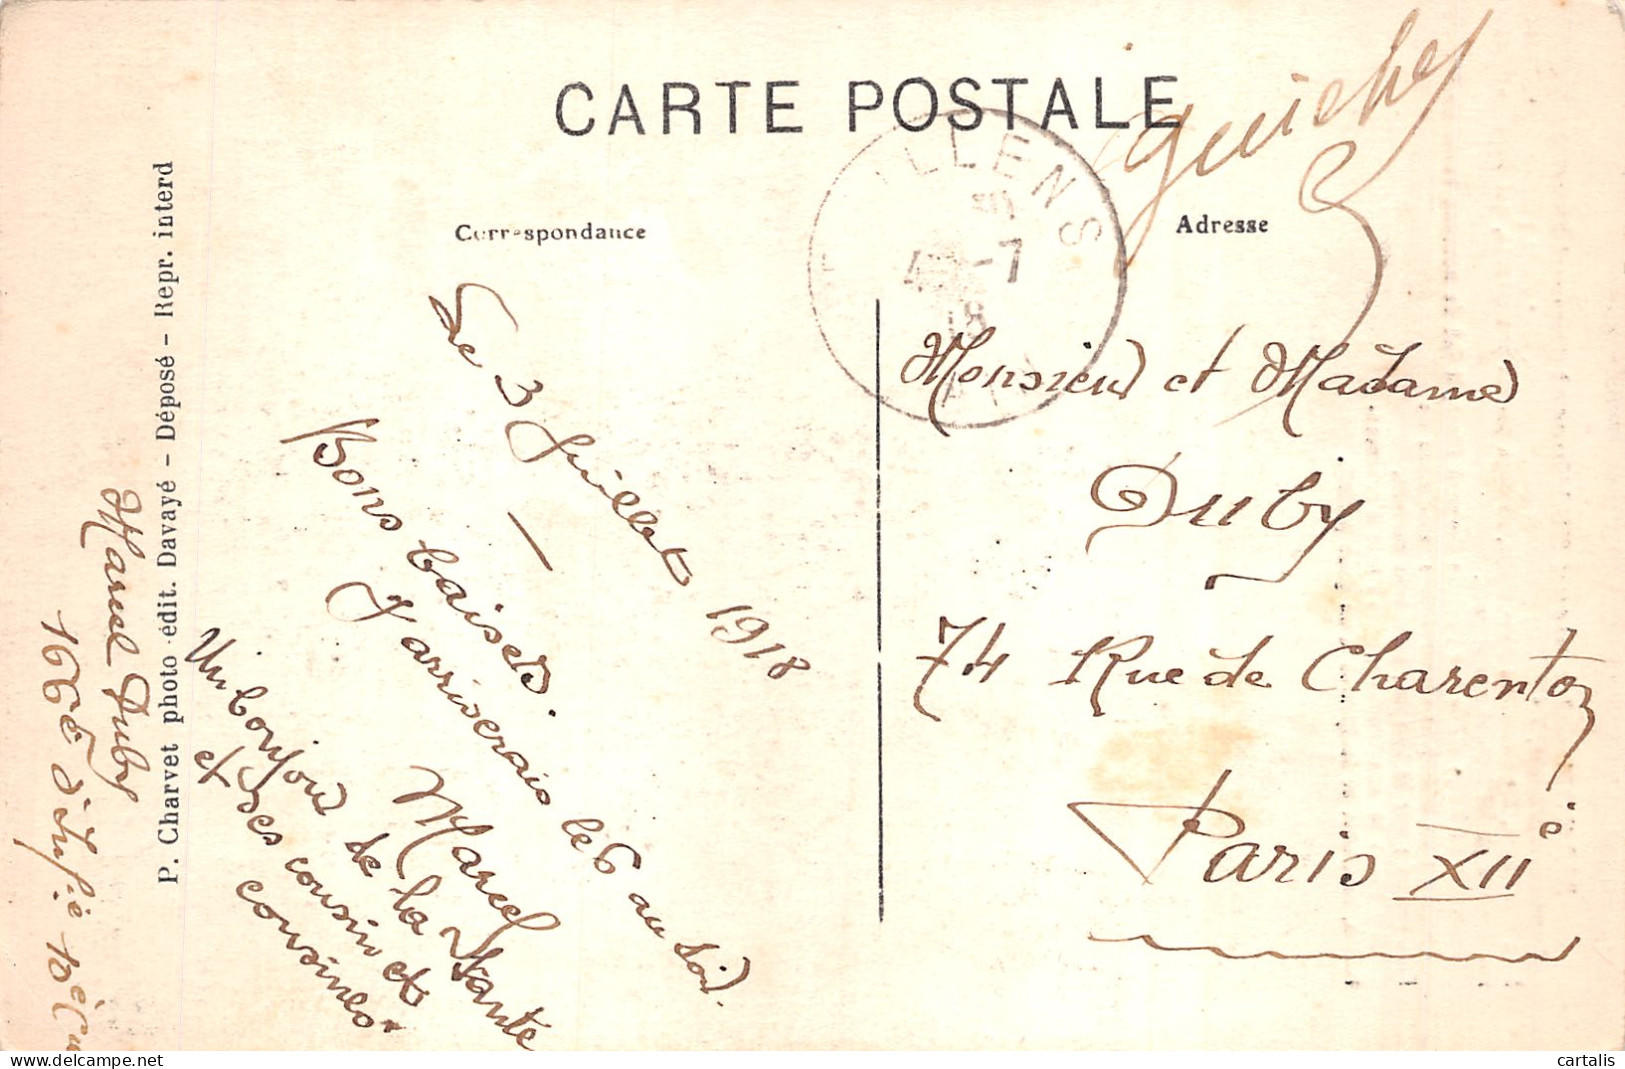 CARTE POSTALE
Correspondance
Adresse
4 -7
18
Le 3 Juillet 1918
Bons baisers.
J'arriverais le 6 au soir.
Marcel
Un bonjour de la Tante
et des cousin et
cousines
Marcel Duby
166e d'Inf.ie 10e
Monsieur et Madame
Duby
74 Rue de Charenton
Paris XIIe
P. Charvet photo-édit. Davayé - Déposé - Repr. interd
cartalis